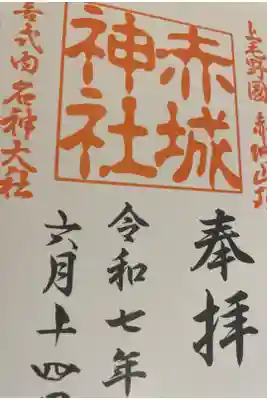 上毛野國 赤城山
奉拝
赤城
神社
令和七年
六月十四日
喜式内名神大社